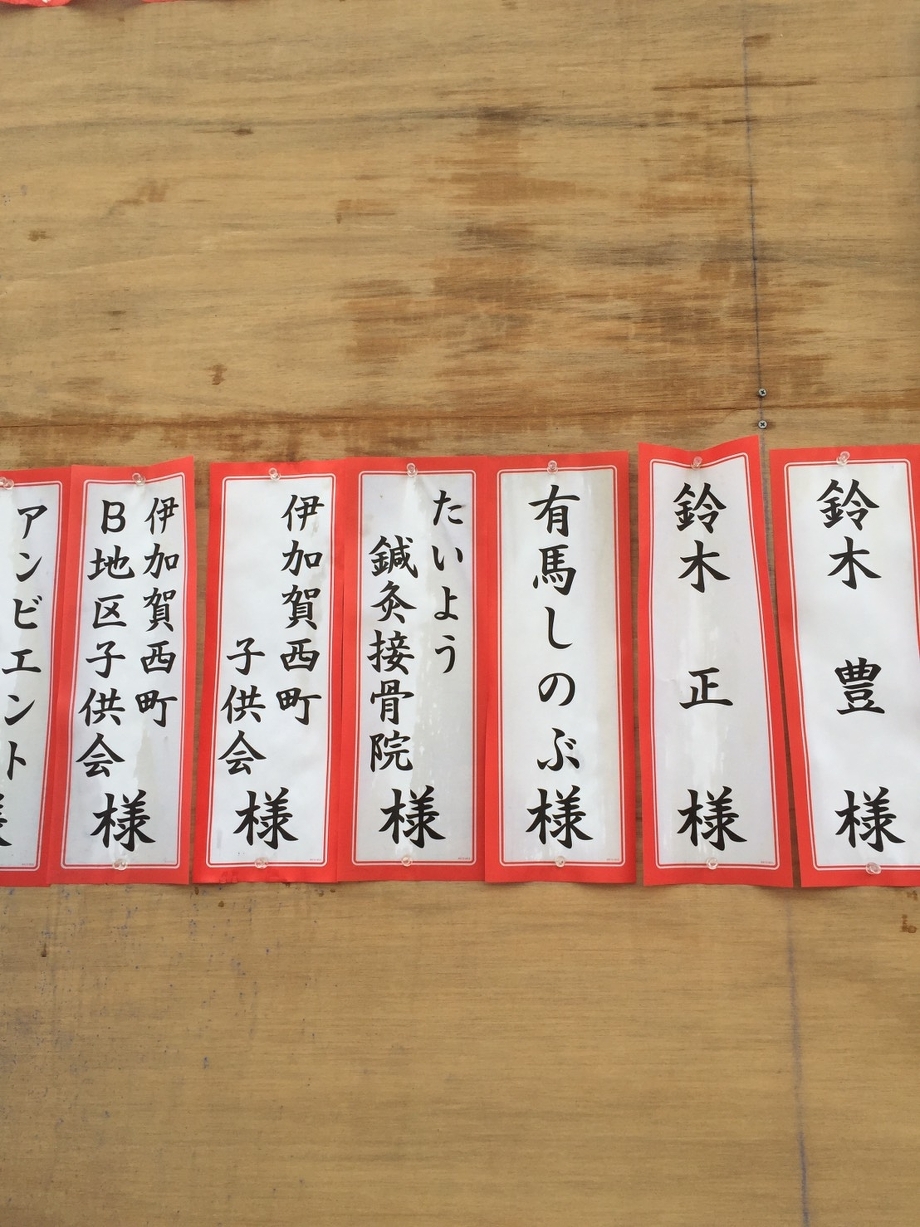 鈴木 豊 様
鈴木 正 様
有馬しのぶ様
たいよう
鍼灸接骨院 様
伊加賀西町
子供会 様
伊加賀西町
B地区子供会 様
アンビエント